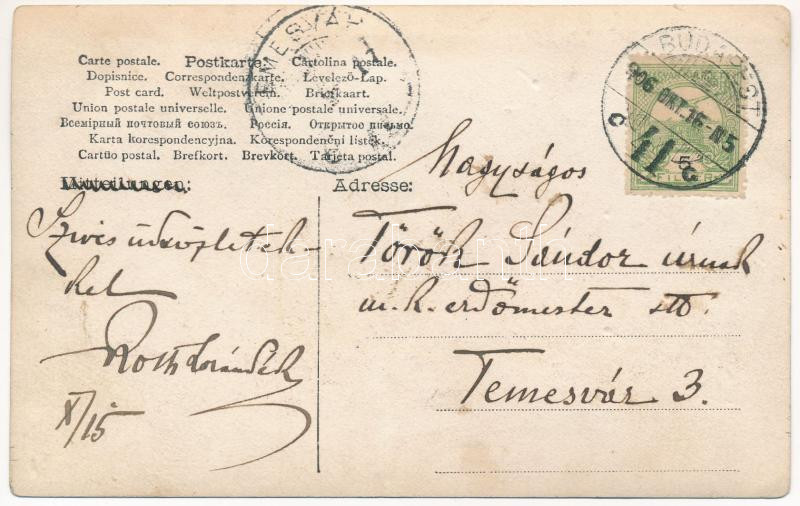 Carte postale. Postkarte. Cartolina postale.
Dopisnice. Correspondenzkarte. Levelező-Lap.
Post card. Weltpostverein. Briefkaart.
Union postale universelle. Unione postale universale.
Всемірный почтовый союзъ. Россія. Открытое письмо.
Karta korespondencyjna. Korespondenční listek.
Cartŭo postal. Brefkort. Brevkort. Tarjeta postal.
TEMESVÁR
BUDAPEST
906 OKT. 16-N5
5
FILLÉR
Mitteilungen:
Adresse:
Szives üdvözletek-
kel
Roth Lorándék
X/15
Nagyságos
Török Sándor úrnak
m. k. erdőmester stb.
Temesvár 3.
darabanth